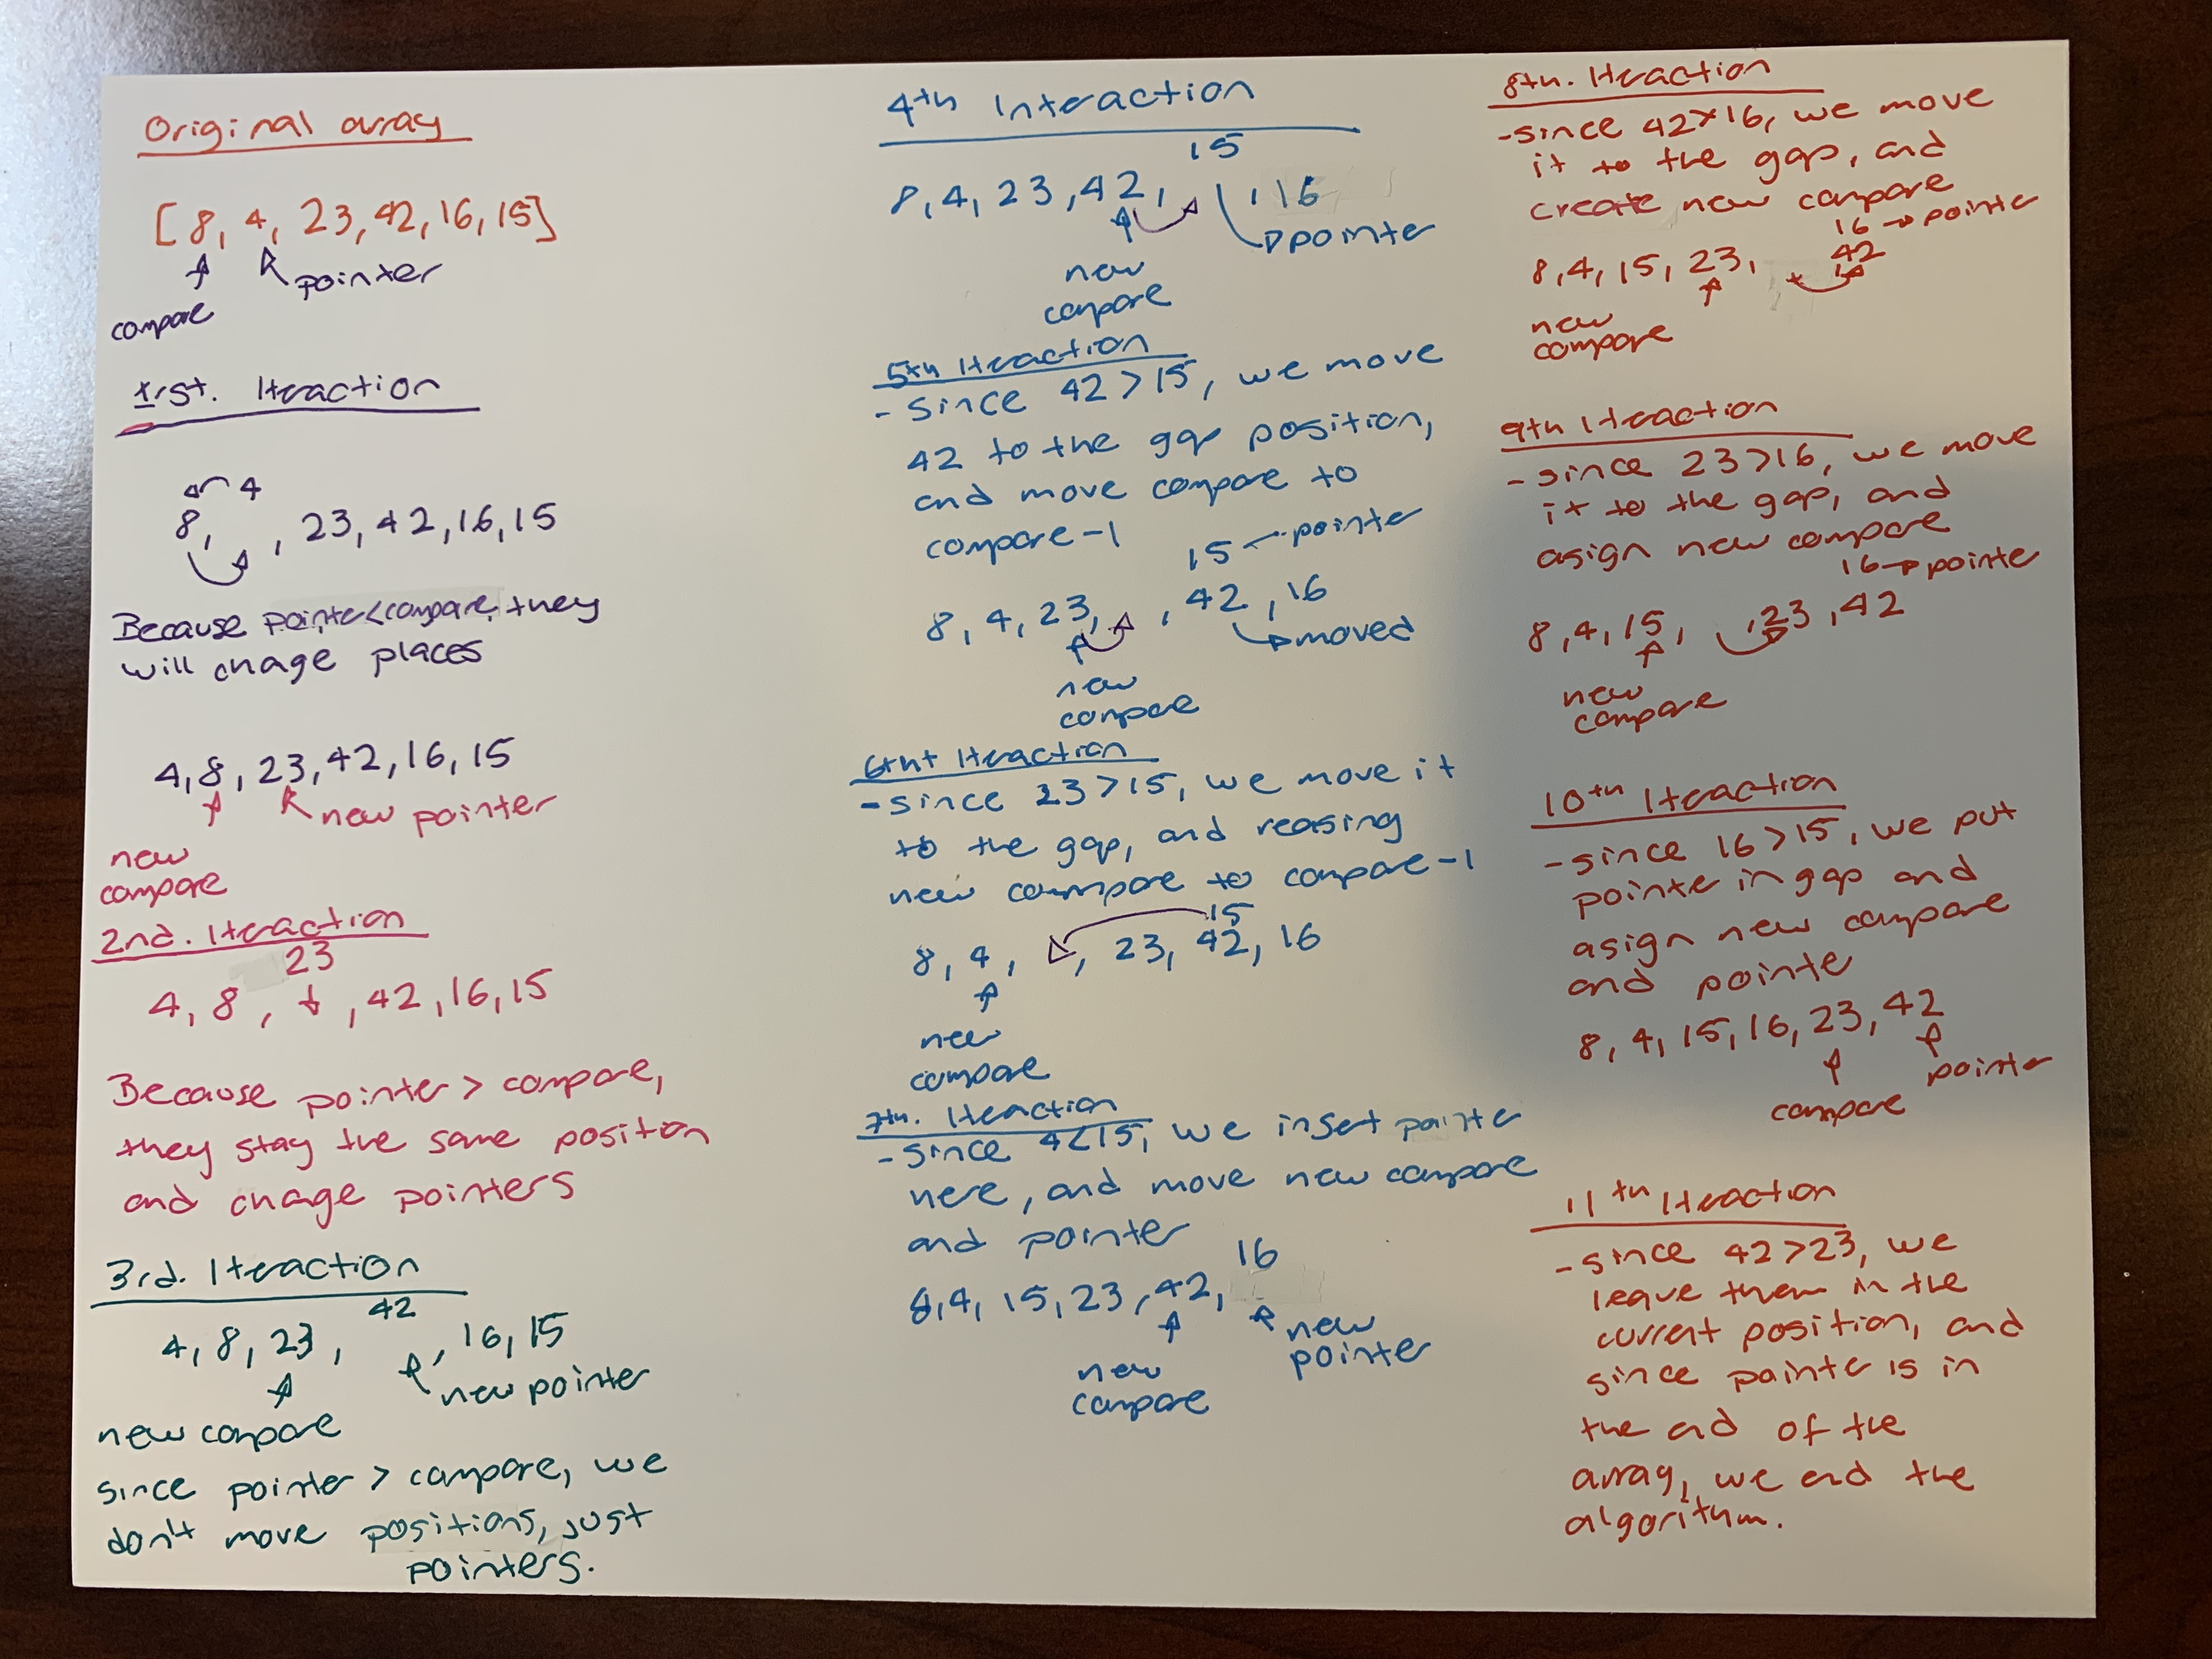 Original array
[8, 4, 23, 42, 16, 15]
compare
pointer
1rst. Iteraction
4
8, , 23, 42, 16, 15
Because pointer<compare, they
will chage places
4, 8, 23, 42, 16, 15
new pointer
new
compare
2nd. Iteraction
23
4, 8, , 42, 16, 15
Because pointer > compare,
they stay the same position
and chage pointers
3rd. Iteraction
42
4, 8, 23, , 16, 15
new pointer
new compare
since pointer > compare, we
don't move positions, just
pointers.
4th Interaction
15
8, 4, 23, 42, , 16
pointer
new
compare
5th Iteraction
- since 42 > 15, we move
42 to the gap position,
and move compare to
compare-1
15 pointer
8, 4, 23, , 42, 16
moved
new
compare
6tht Iteraction
- since 23 > 15, we move it
to the gap, and reasing
new commpare to compare-1
15
8, 4, , 23, 42, 16
new
compare
7th. Iteraction
- since 4<15, we insert pointer
here, and move new compare
and pointer
16
8, 4, 15, 23, 42,
new
pointer
new
compare
8th. Iteraction
- since 42>16, we move
it to the gap, and
create new compare
16 → pointer
8, 4, 15, 23, , 42
new
compare
9th Iteraction
- since 23>16, we move
it to the gap, and
asign new compare
16 → pointe
8, 4, 15, , 23, 42
new
compare
10th Iteraction
- since 16 > 15, we put
pointe in gap and
asign new compare
and pointe
8, 4, 15, 16, 23, 42
pointer
compare
11th Iteraction
- since 42 > 23, we
leave them in the
current position, and
since pointe is in
the end of the
array, we end the
algorithm.